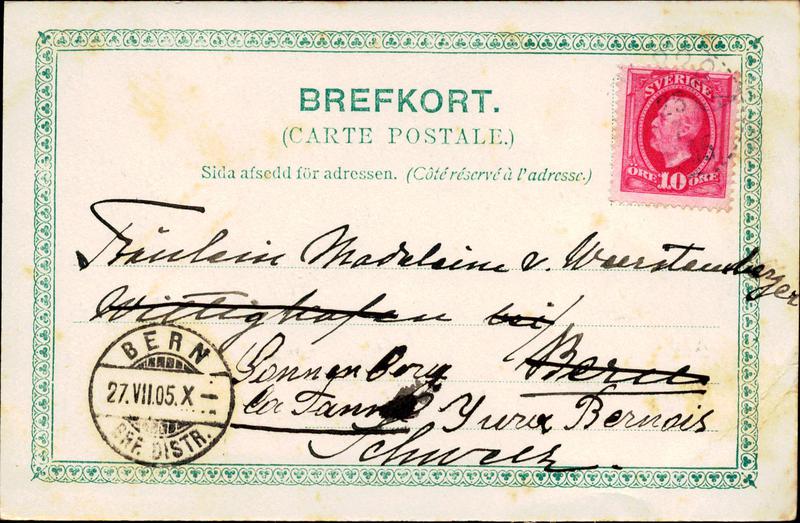 BREFKORT.
(CARTE POSTALE.)
Sida afsedd för adressen. (Côté réservé à l'adresse.)
SVERIGE
ÖRE 10 ÖRE
Fräulein Madeleine v. Wurstemberger
Wittighofen bei
Bern
Sonnenberg
la Tanne Jura Bernois
Schweiz.
BERN
27.VII.05.X
BRF. DISTR.